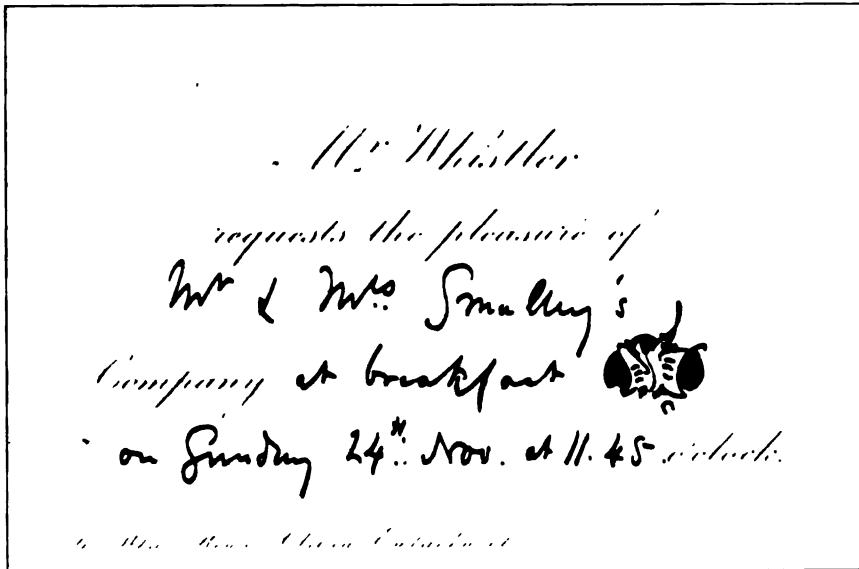 Mr Whistler
requests the pleasure of
Mr & Mrs. Smalley's
Company at breakfast
on Sunday 24th. Nov. at 11.45 o'clock.